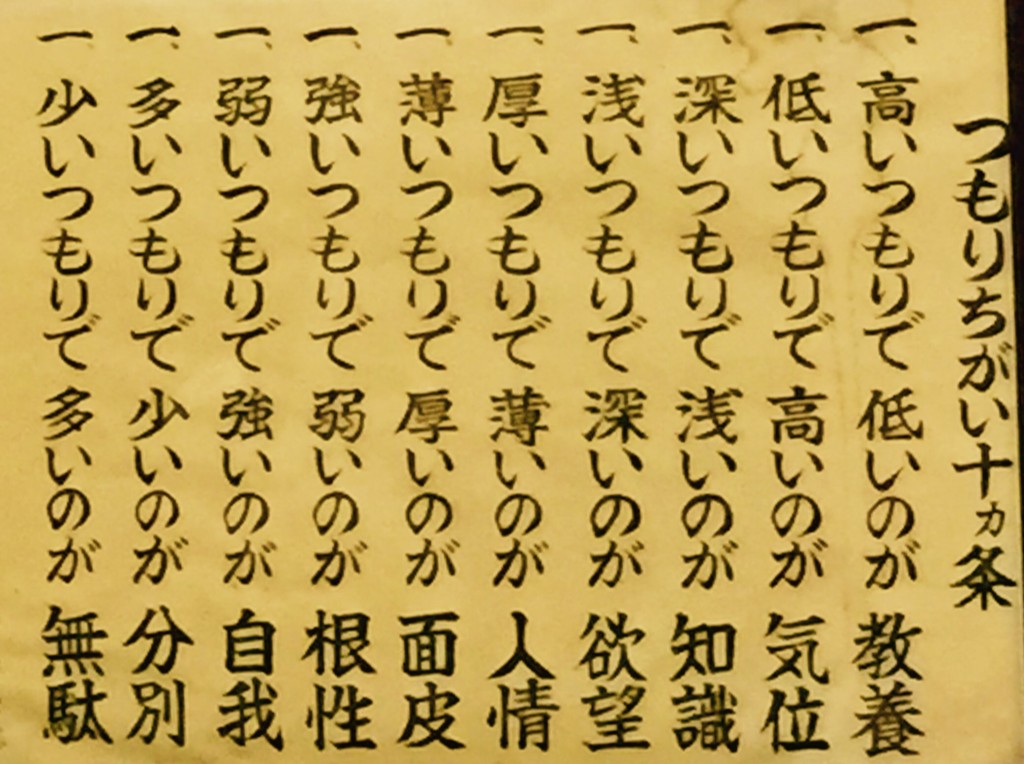 つもりちがい十ヵ条
一、高いつもりで低いのが教養
一、低いつもりで高いのが気位
一、深いつもりで浅いのが知識
一、浅いつもりで深いのが欲望
一、厚いつもりで薄いのが人情
一、薄いつもりで厚いのが面皮
一、強いつもりで弱いのが根性
一、弱いつもりで強いのが自我
一、多いつもりで少いのが分別
一、少いつもりで多いのが無駄